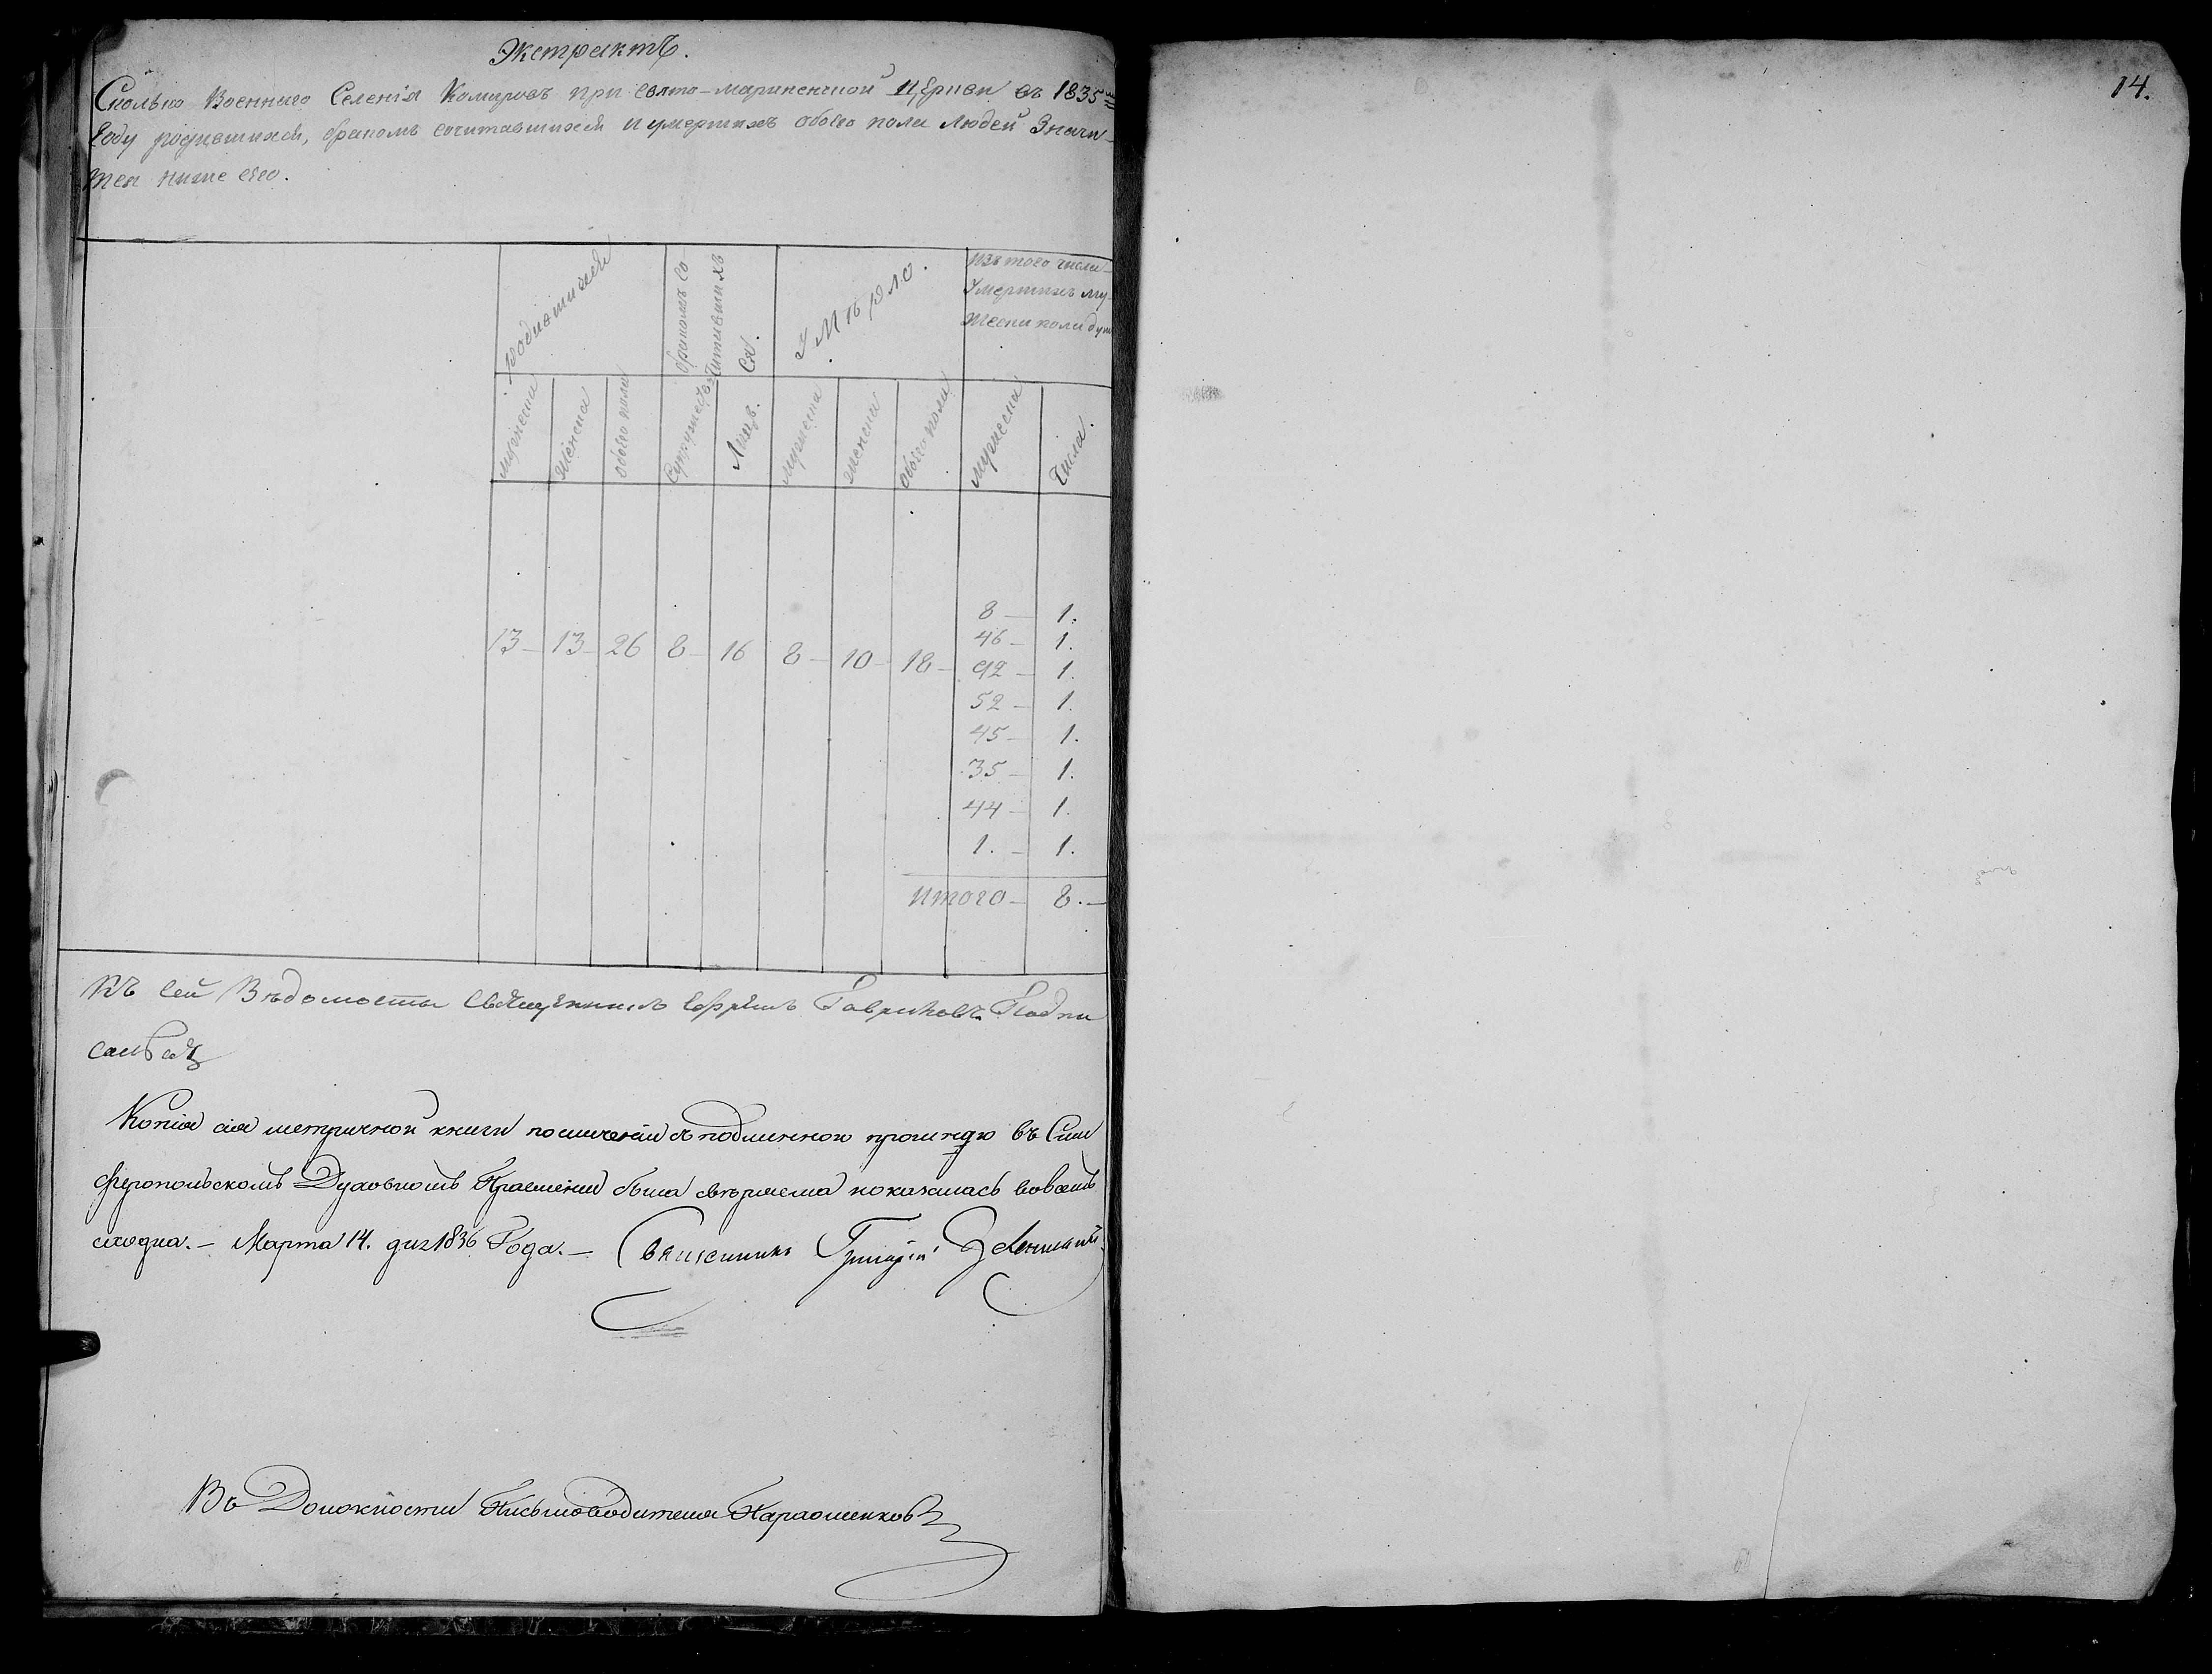 Экстрактъ.
Сколько Военнаго Селенія Комаровъ при Свято-мариненской Церкви въ 1835м
Году родившихся, бракомъ сочитавшихся и умершихъ обоего пола людей Значи-
тся ниже сего.
родившихся
бракомъ со
читавшихъ
ся.
Умърло.
изъ того числа
Умершихъ му-
жеска пола душ
мужеска
женска
обоего пола
Супружествъ
Лицъ.
мужеска
женска
обоего пола
мужеска
Числа.
13 – 13 – 26 8 – 16 8 – 10 – 18 –
8 – 1.
46 – 1.
92 – 1.
52 – 1.
45 – 1.
35 – 1.
44 – 1.
1. – 1.
Итого – 8. –
Къ сей Вѣдомосты Священникъ Ефремъ Гавриковъ Подпи
салъся
Копія сія метричной книги по сличеніи съ подлинною прошнрою въ Сим
феропольскомъ Духовномъ Правленіи была свѣряема показалась вовсемъ
сходна. – Марта 14. дня 1836 Года. – Священникъ Григорій
Въ Должности Письмоводителя
14.